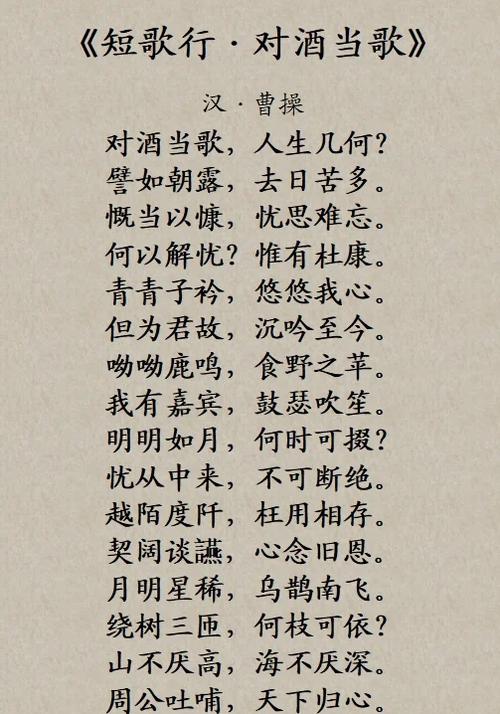 《短歌行·对酒当歌》
汉·曹操
对酒当歌，人生几何？
譬如朝露，去日苦多。
慨当以慷，忧思难忘。
何以解忧？惟有杜康。
青青子衿，悠悠我心。
但为君故，沉吟至今。
呦呦鹿鸣，食野之苹。
我有嘉宾，鼓瑟吹笙。
明明如月，何时可掇？
忧从中来，不可断绝。
越陌度阡，枉用相存。
契阔谈讌，心念旧恩。
月明星稀，乌鹊南飞。
绕树三匝，何枝可依？
山不厌高，海不厌深。
周公吐哺，天下归心。